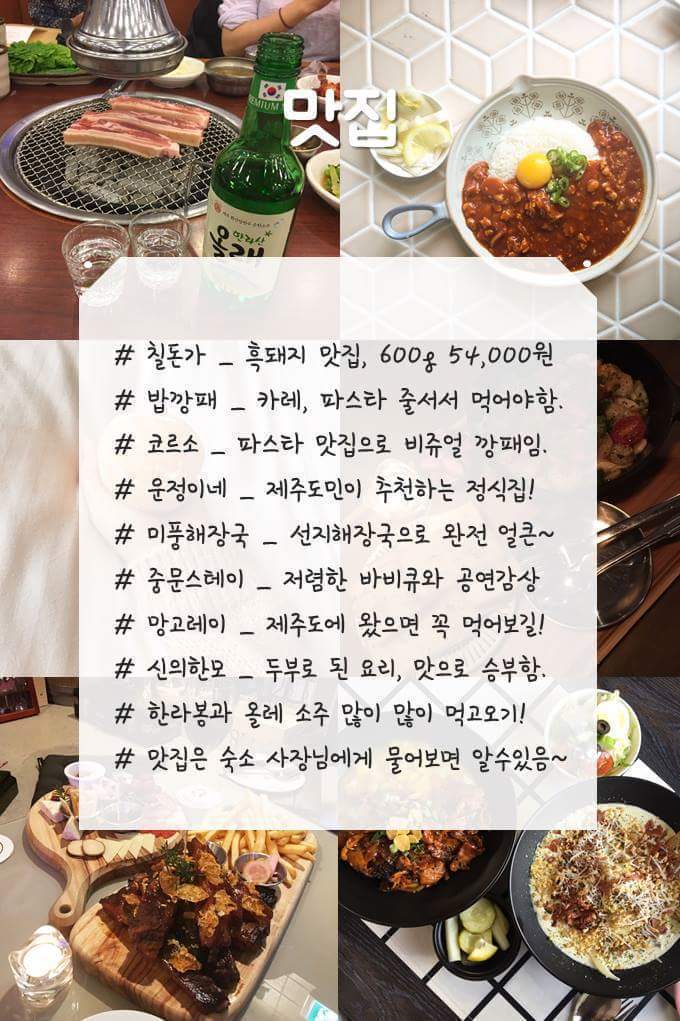 PREMIUM
맛집
한라산
올래
# 칠돈가 _ 흑돼지 맛집, 600g 54,000원
# 밥깡패 _ 카레, 파스타 줄서서 먹어야함.
# 코르소 _ 파스타 맛집으로 비쥬얼 깡패임.
# 운정이네 _ 제주도민이 추천하는 정식집!
# 미풍해장국 _ 선지해장국으로 완전 얼큰~
# 중문스테이 _ 저렴한 바비큐와 공연감상
# 망고레이 _ 제주도에 왔으면 꼭 먹어보길!
# 신의한모 _ 두부로 된 요리, 맛으로 승부함.
# 한라봉과 올레 소주 많이 많이 먹고오기!
# 맛집은 숙소 사장님에게 물어보면 알수있음~